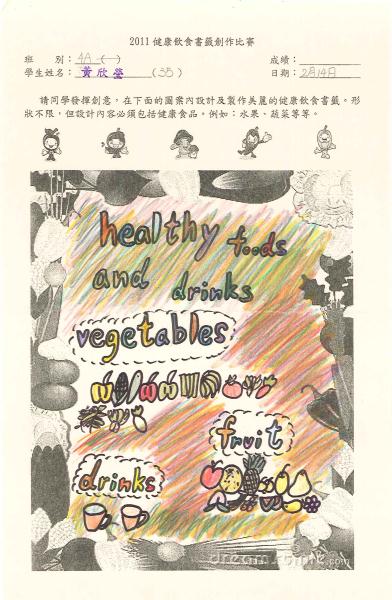 2011 健康飲食書籤創作比賽
班 別：4A (一) 成績：
學生姓名：黃欣瑩 (35) 日期：2月14日
請同學發揮創意，在下面的圖案內設計及製作美麗的健康飲食書籤。形
狀不限，但設計內容必須包括健康食品。例如：水果、蔬菜等等。
healthy foods
and drinks
vegetables
fruit
drinks
dreamstime.com